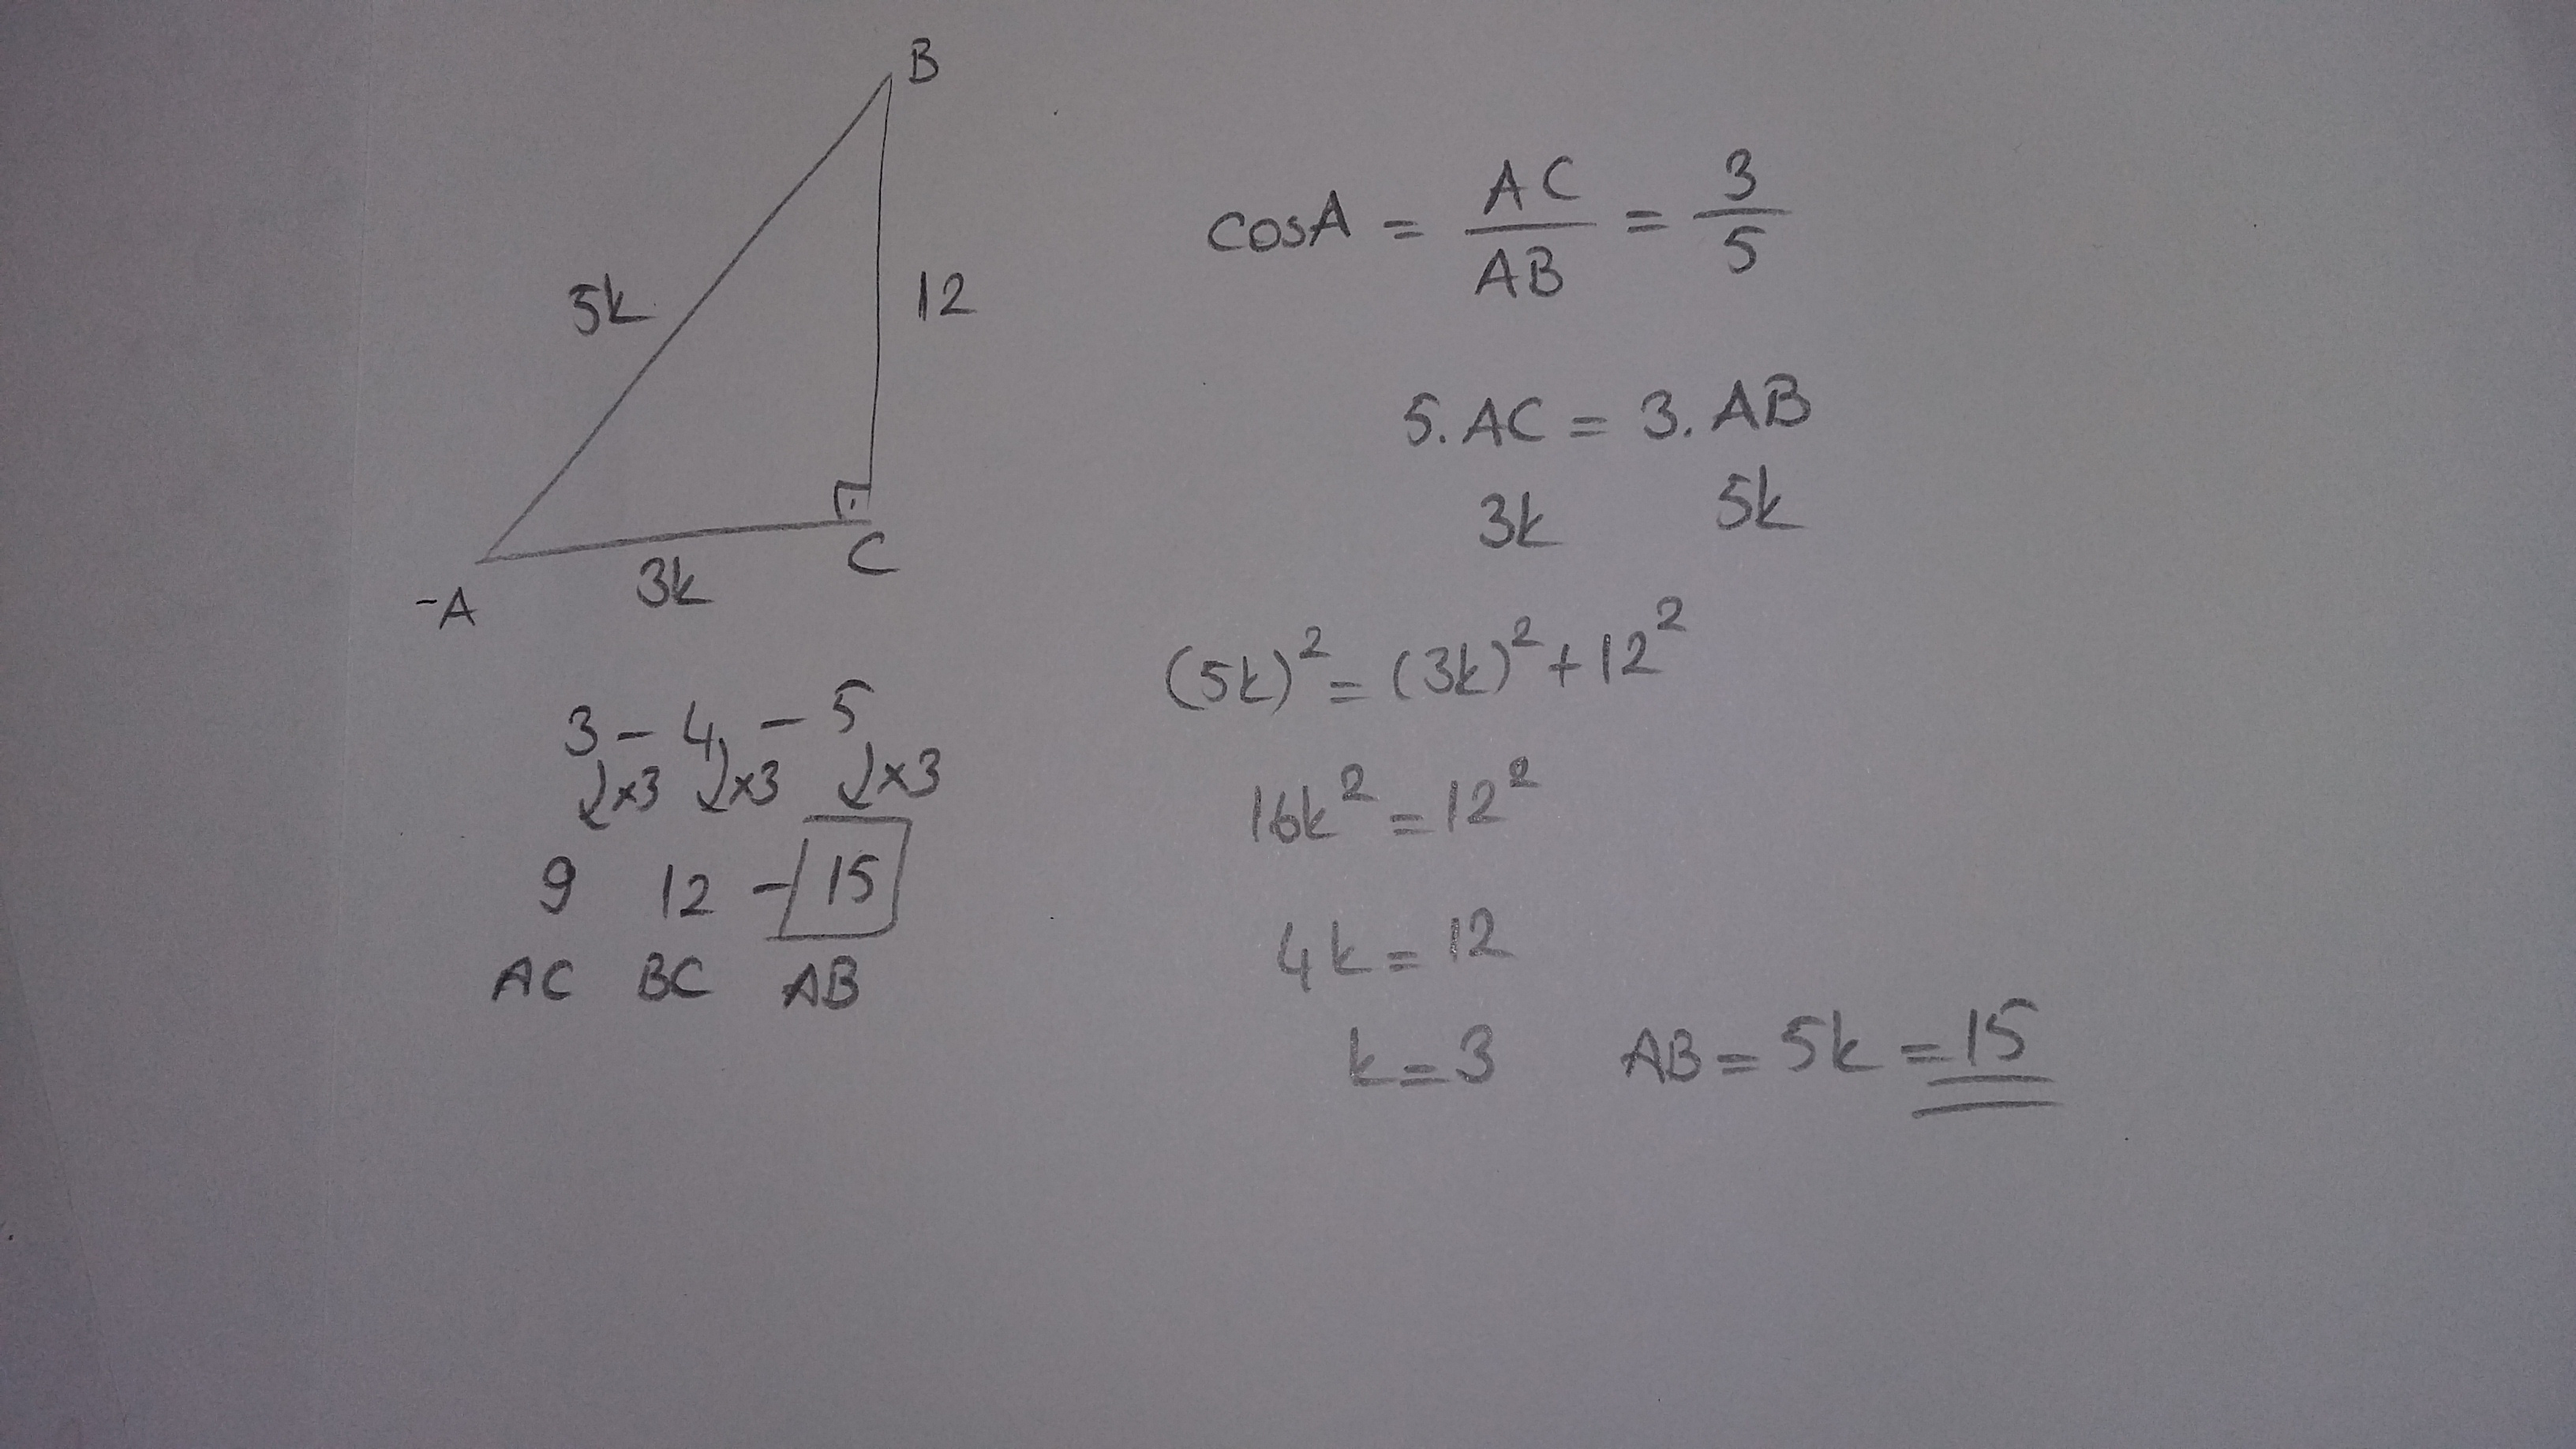 B
5k
12
C
-A
3k
3 - 4 - 5
×3 ×3 ×3
9 12 - 15
AC BC AB
cosA = AC/AB = 3/5
5.AC = 3.AB
3k 5k
(5k)² = (3k)² + 12²
16k² = 12²
4k = 12
k = 3 AB = 5k = 15